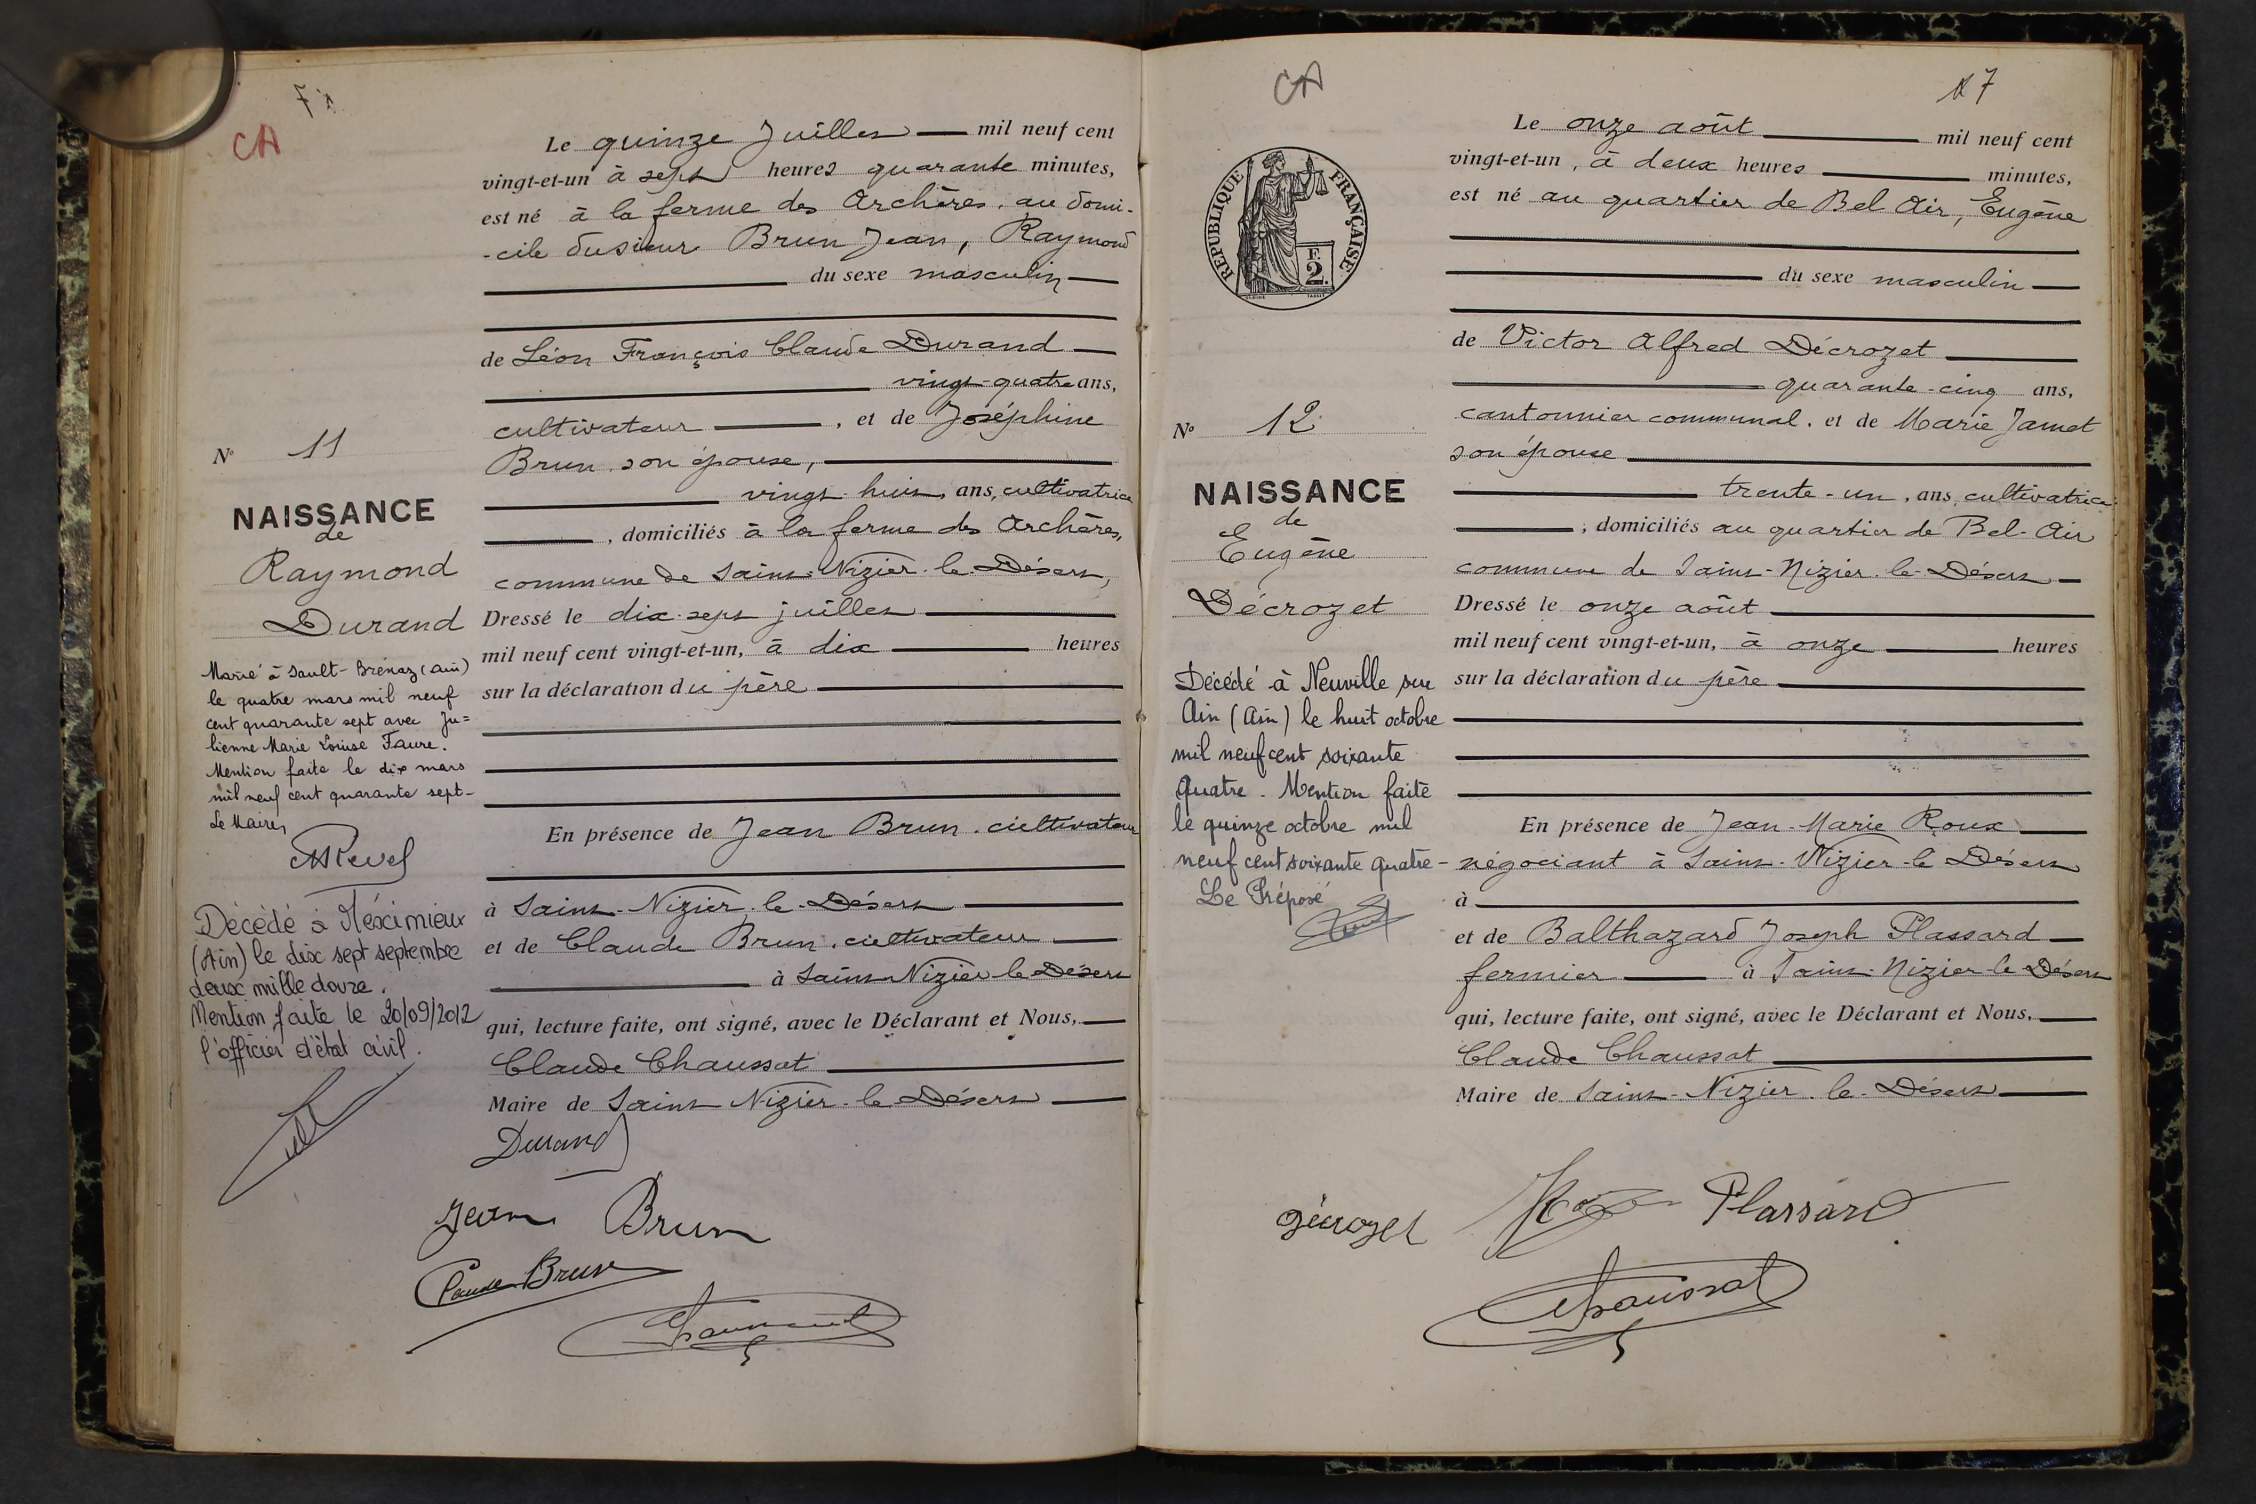 CA
N° 11
NAISSANCE
de
Raymond
Durand
Marié à Sault-Brénaz (Ain)
le quatre mars mil neuf
cent quarante sept avec Ju=
lienne Marie Louise Faure.
Mention faite le dix mars
mil neuf cent quarante sept-
Le Maire,
Décédé à Méximieux
(Ain) le dix sept septembre
deux mille douze.
Mention faite le 20/09/2012
l'officier d'état civil.
Le quinze Juillet mil neuf cent
vingt-et-un à sept heures quarante minutes,
est né à la ferme des Archères, au domi-
-cile du sieur Brun Jean, Raymond
du sexe masculin
de Léon François Claude Durand
vingt-quatre ans,
cultivateur, et de Joséphine
Brun son épouse,
vingt-huit, ans, cultivatrice
, domiciliés à la ferme des Archères,
commune de Saint-Nizier-le-Désert,
Dressé le dix-sept juillet
mil neuf cent vingt-et-un, à dix heures
sur la déclaration du père
En présence de Jean Brun, cultivateur
à Saint-Nizier-le-Désert
et de Claude Brun, cultivateur
à Saint-Nizier-le-Désert
qui, lecture faite, ont signé, avec le Déclarant et Nous,
Claude Chaussat
Maire de Saint-Nizier-le-Désert
Durand
Jean Brun
Claude Brun
Chaussat
CA
7
RÉPUBLIQUE FRANÇAISE
F.
2.
N° 12
NAISSANCE
de
Eugène
Décrozet
Décédé à Neuville sur
Ain (Ain) le huit octobre
mil neuf cent soixante
quatre. Mention faite
le quinze octobre mil
neuf cent soixante quatre-
Le Préposé
Le onze août mil neuf cent
vingt-et-un, à deux heures minutes,
est né au quartier de Bel-Air, Eugène
du sexe masculin
de Victor Alfred Décrozet
quarante-cinq ans,
cantonnier communal, et de Marie Jamet
son épouse
trente-un, ans, cultivatrice
, domiciliés au quartier de Bel-Air
commune de Saint-Nizier-le-Désert
Dressé le onze août
mil neuf cent vingt-et-un, à onze heures
sur la déclaration du père
En présence de Jean-Marie Roux
négociant à Saint-Nizier-le-Désert
à
et de Balthazard Joseph Plassard
fermier à Saint-Nizier-le-Désert
qui, lecture faite, ont signé, avec le Déclarant et Nous,
Claude Chaussat
Maire de Saint-Nizier-le-Désert
Décrozet Plassard
Chaussat